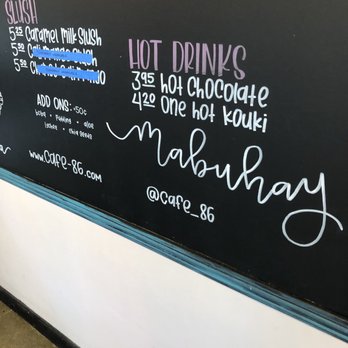 SLUSH
5.25 Caramel Milk Slush
5.50 Slush
5.50
ADD ONS: +50¢
boba • pudding • aloe
lychee • chia seeds
www.Cafe-86.com
HOT DRINKS
3.95 hot Chocolate
4.20 One hot Kouki
mabuhay
@cafe_86